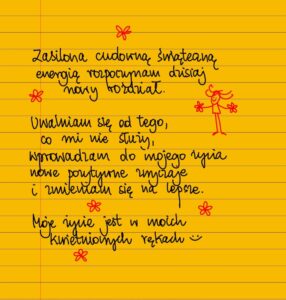 Zasilona cudowną świąteczną
energią rozpoczynam dzisiaj
nowy rozdział.
Uwalniam się od tego,
co mi nie służy,
wprowadzam do mojego życia
nowe pozytywne zwyczaje
i zmieniam się na lepsze.
Moje życie jest w moich
kwietnionych rękach